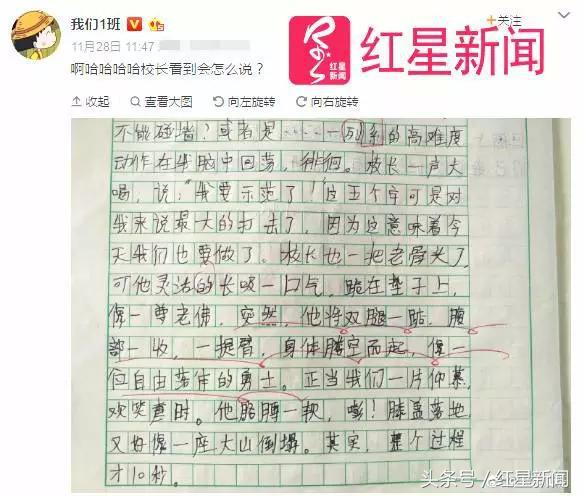 我们1班
11月28日 11:47
+关注
红星新闻
红星新闻
啊哈哈哈哈校长看到会怎么说？
收起 查看大图 向左旋转 向右旋转
不能碰着？或者是……一列系的高难度
动作在我脑中回荡，徘徊。校长一声大
喝，说："我要示范了！"这五个字可是对
我来说最大的打击了，因为这意味着今
天我们也要做了。校长也一把老骨头了，
可他灵活的长吸一口气，跪在垫子上，
像一尊老佛，突然，他将双腿一踮，腹
部一收，一提臂，身体腾空而起，像一
位自由落体的勇士。正当我们一片仰慕，
欢笑意时。他胳膊一软，嘭！膝盖落地
又好像一座大山倒塌。其实，整个过程
才10秒。
头条号/红星新闻